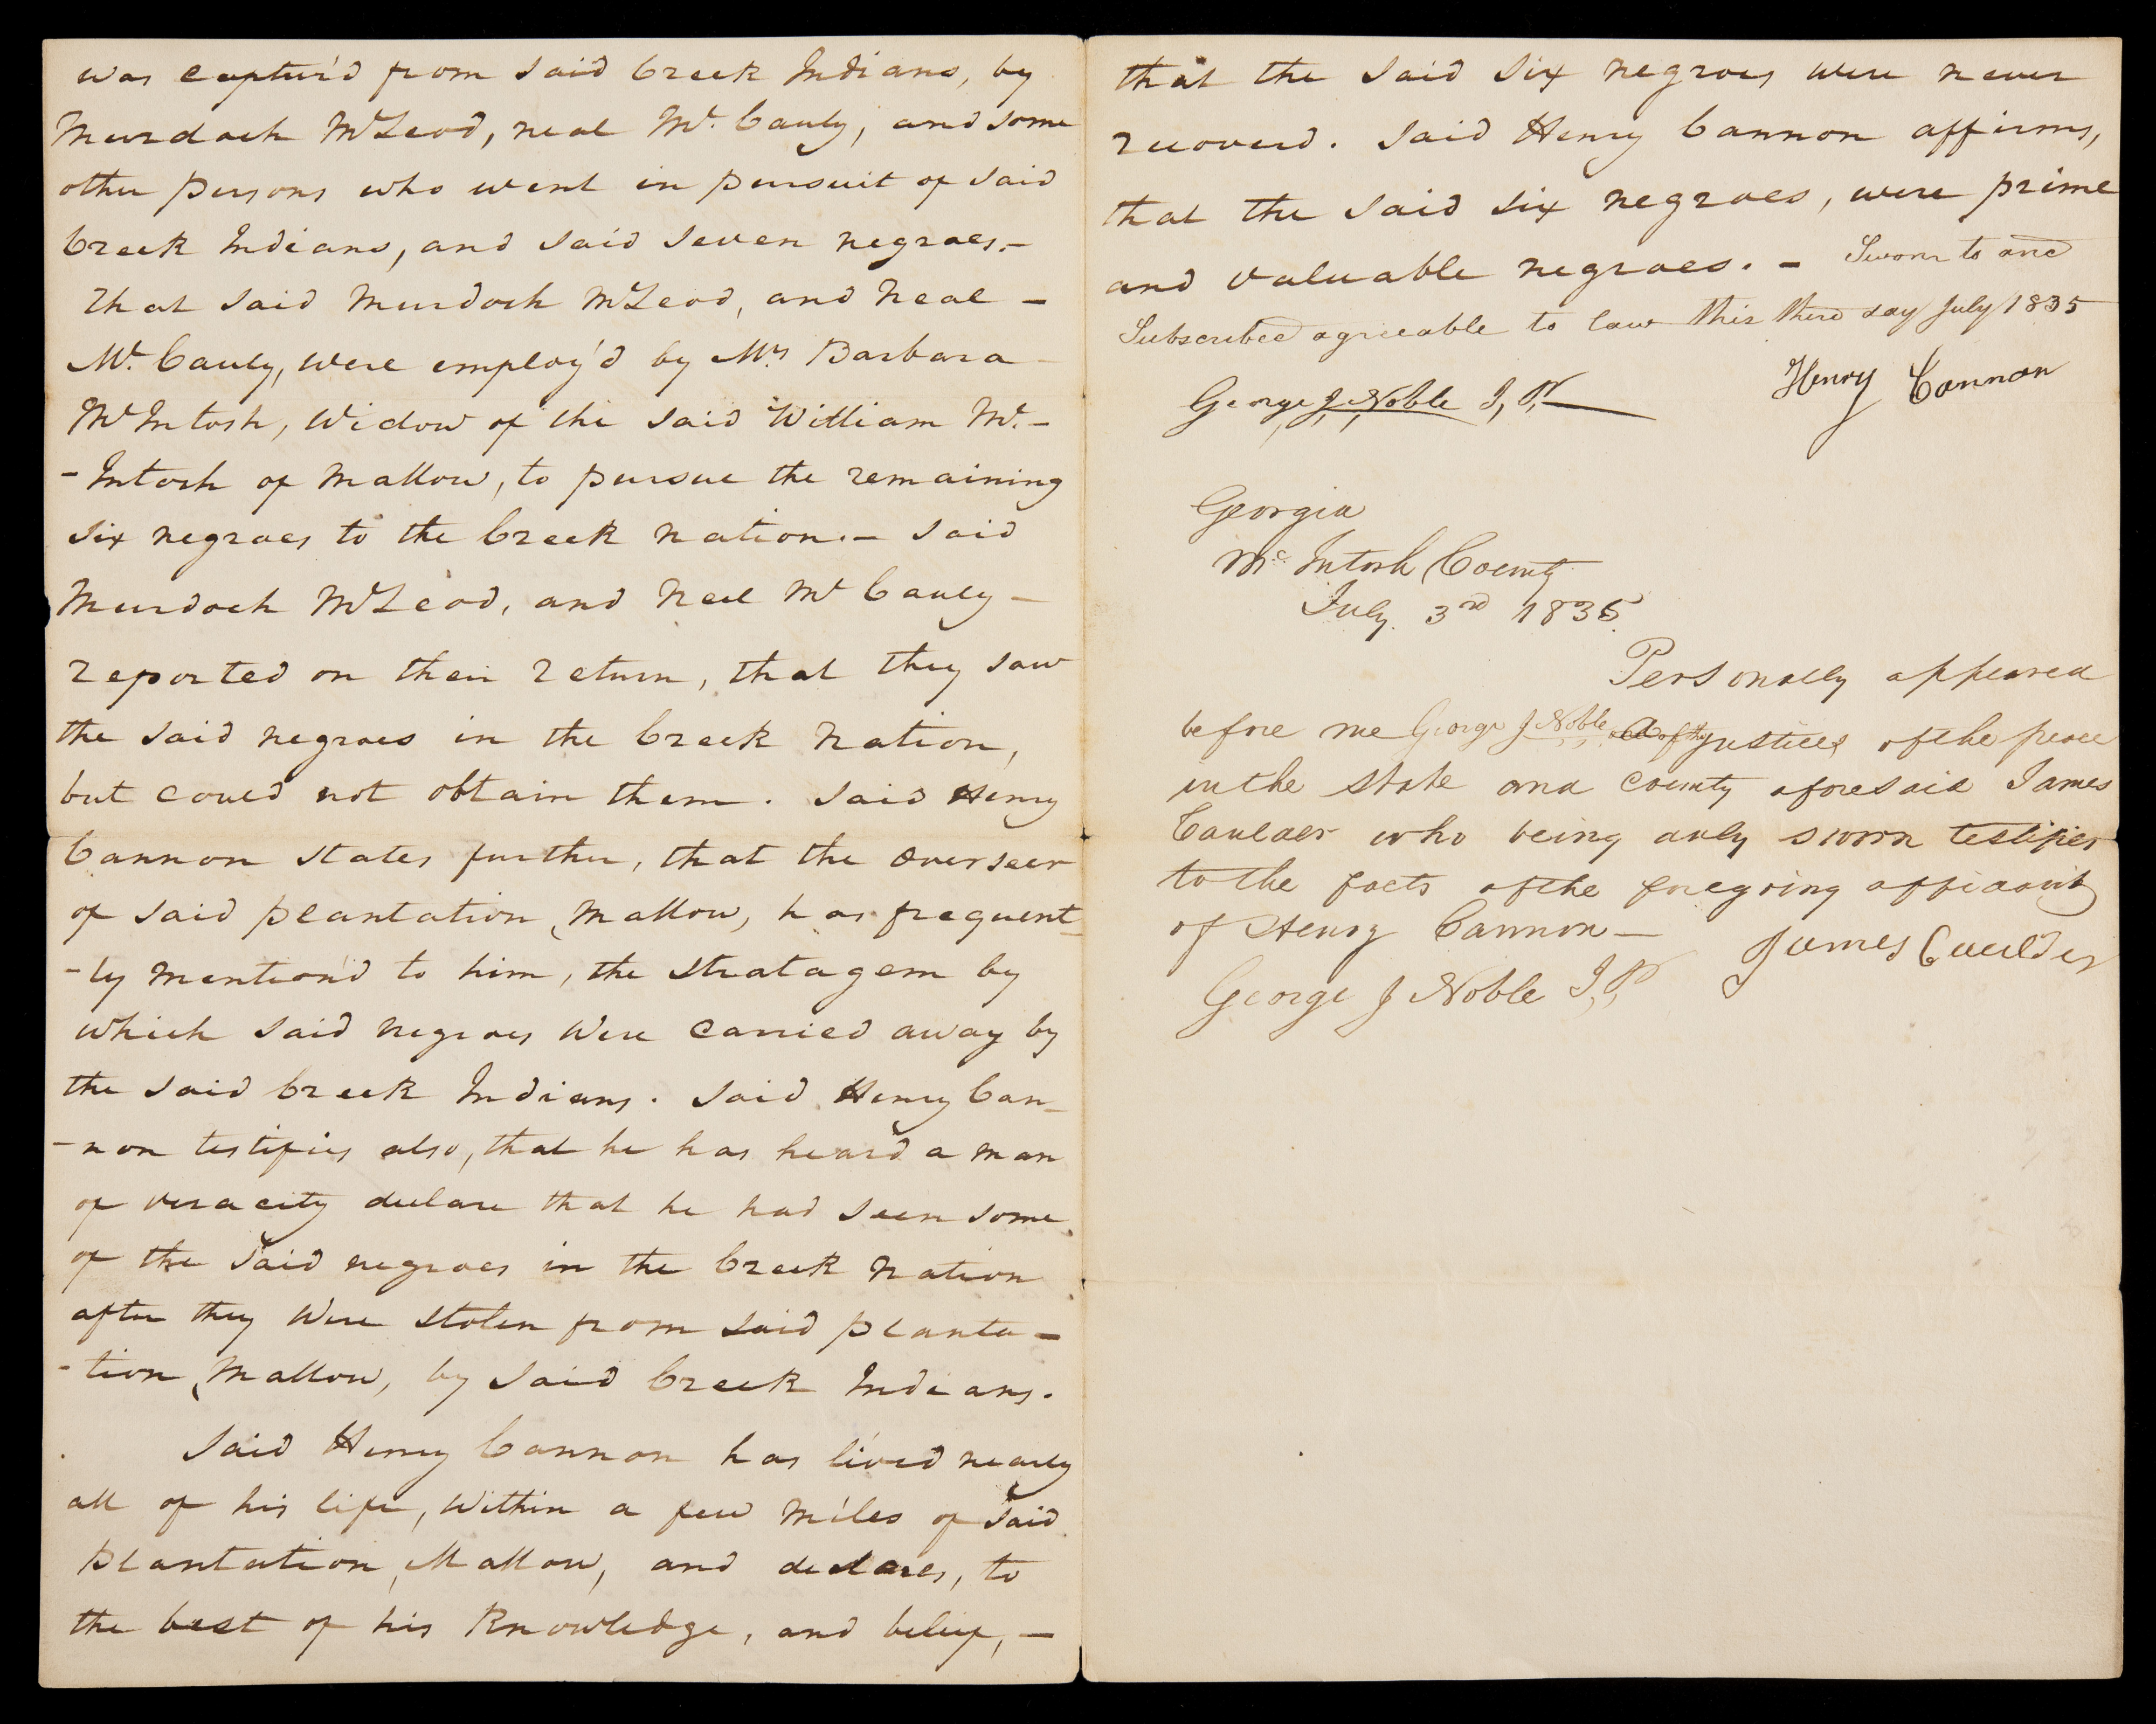 was captur'd from said Creek Indians, by
Murdoch McLeod, neal Mc. Cauly, and some
other persons who went in pursuit of said
Creek Indians, and said seven negroes.-
That said Murdoch McLeod, and Neal -
Mc. Cauly, were employ'd by Mrs. Barbara -
McIntosh, Widow of the said William Mc. -
- Intosh of Mallow, to pursue the remaining
six negroes to the Creek nation. - Said
Murdoch McLeod, and Neal Mc Cauly -
reported on their return, that they saw
the said negroes in the Creek Nation,
but could not obtain them. Said Henry
Cannon states further, that the Overseer
of said plantation, Mallow, has frequent-
-ly mention'd to him, the stratagem by
which said negroes were carried away by
the said Creek Indians. Said Henry Can-
-non testifies also, that he has heard a man
of veracity declare that he had seen some
of the said negroes in the Creek Nation
after they were stolen from said planta-
-tion, Mallow, by said Creek Indians.
Said Henry Cannon has lived nearly
all of his life, within a few miles of said
Plantation, Mallow, and declares, to
the best of his knowledge, and belief, -
that the said six negroes were never
recoverd. Said Henry Cannon affirms,
that the said six negroes, were prime
and valuable negroes. - Sworn to and
Subscribed agreeable to law this third day July 1835
George J Noble J, P, Henry Cannon
Georgia
Mc Intosh County
July 3rd 1835.
Personally appeared
before me George J Noble justice of the peace
in the state and county aforesaid James
Caulder who being duly sworn testifies
to the facts of the foregoing affidavit
of Henry Cannon -
James Caulder
George J Noble J, P,